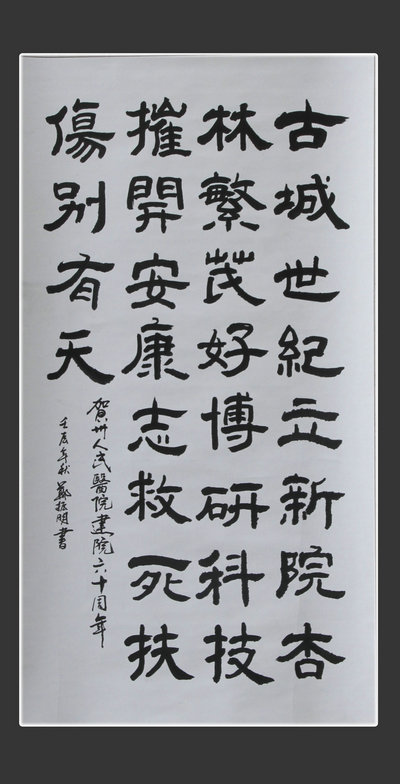 古城世紀立新院杏
林繁茂好博研科技
摧開安康志救死扶
傷別有天
賀州人民醫院建院六十周年
壬辰年秋 鄭振明書